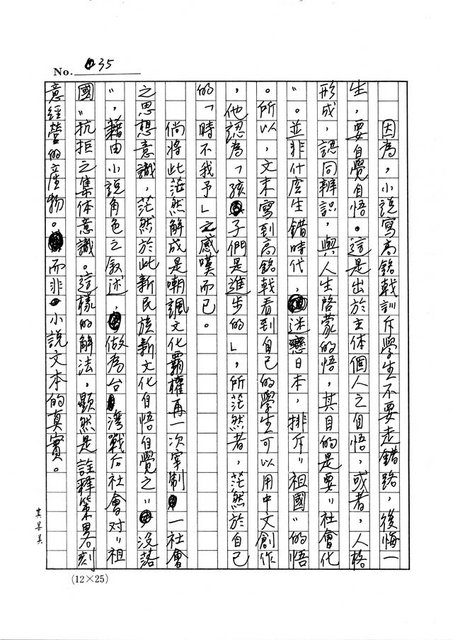 No. 035
因為，小說寫高銘戟訓斥學生不要走錯路，後悔一
生，要自覺自悟。這是出於主体個人之自悟，或者，人格
形成，認同辨識，與人生啓蒙的悟，其目的是要〝社會化
〞。並非什麼生錯時代，迷戀日本，排斥〝祖國〞的悟
。所以，文末寫到高銘戟看到自己的學生可以用中文創作
，他認為「孩子們是進步的」，所茫然者，茫然於自己
的「時不我予」之感嘆而已。
倘將此茫然解成是嘲諷文化霸權再一次宰制一社會
之思想意識，茫然於此新民族新文化自悟自覺之〝没落
〞，藉由小說角色之敘述，做為台灣戰后社會对〝祖
國〞抗拒之集体意識。這樣的解法，顯然是詮釋策畧刻
意經營的產物。而非小說文本的真實。
(12×25)